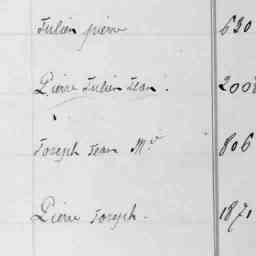 Julien pierre 630
Pierre Julien Jean. 2008
Joseph Jean M.ie 806
Pierre Joseph. 1871